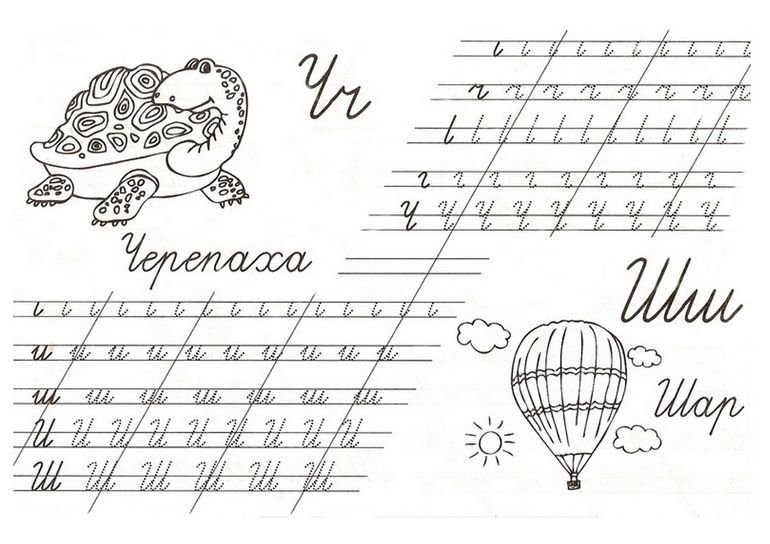 Чч
ч ч ч ч ч ч ч ч
Ч Ч Ч Ч Ч Ч Ч Ч Ч
Черепаха
Шш
и и и и и и и и и и
ш ш ш ш ш ш ш
Шар
И И И И И И И И И
Ш Ш Ш Ш Ш Ш